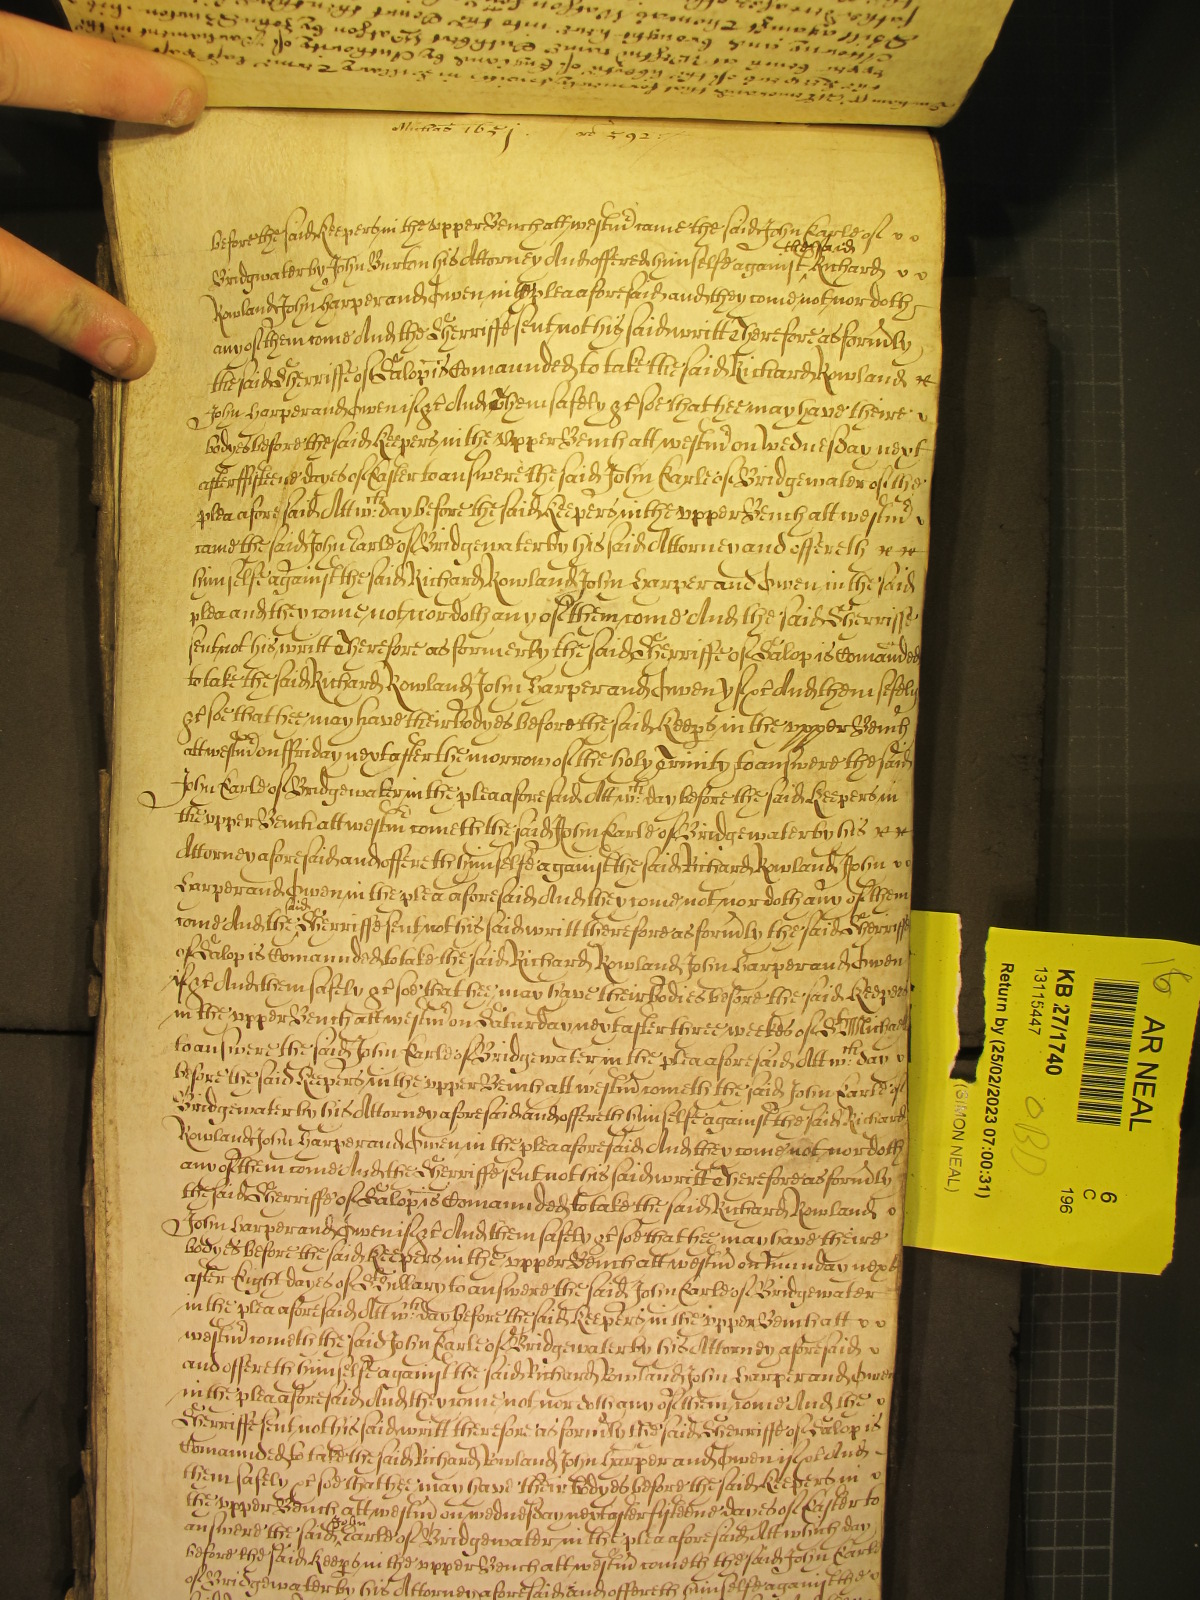 Michas 1651 ro 592
before the said Keepers in the upper Bench att westmr came the said John Earle of
the said
Bridgwater by John Burton his Attorney And offered himselfe against Richard
Rowland John Harper and Owen in the plea aforesaid and they come not nor doth
any of them come And the Sherriffe sent not his said writt Therefore as formerly
the said Sherriffe of Salop is Comaunded to take the said Richard Rowland
John Harper and Owen if &c And Them safely &c soe that hee may have theire
bodyes before the said Keepers in the upper Bench att westmr on wednesday next
after ffifteene dayes of Easter to answere the said John Earle of Bridgewater of the
plea aforesaid Att wch day before the said Keepers in the upper Bench att westmr
came the said John Earle of Bridgewater by his said Attorney and offereth
himselfe against the said Richard Rowland John Harper and Owen in the said
plea and they come not nor doth any of them come And the said Sherriffe
sent not his writt Therefore as formerly the said Sherriffe of Salop is Comanded
to take the said Richard Rowland John Harper and Owen yf &c And them safely
&c soe that hee may have their bodyes before the said Keeps in the upper Bench
att westmr on ffriday next after the morrow of the holy Trinity to answere the said
John Earle of Bridgewater in the plea aforesaid Att wch day before the said Keepers in
the upper Bench att westmr cometh the said John Earle of Bridgewater by his
Attorney aforesaid and offereth himselfe against the said Richard Rowland John
Harper and Owen in the plea aforesaid And they come not nor doth any of them
said
come And the Sherriffe sent not his said writt therefore as formly the said Sherriffe
of Salop is Comaunded to take the said Richard Rowland John Harper and Owen
if &c And them safely &c soe that hee may have their bodies before the said Keepers
in the upper Bench att westmr on Saturday next after three weekes of St Michaell
to answere the said John Earle of Bridgewater in the plea aforesaid Att wch day
before the said Keepers in the upper Bench att westmr cometh the said John Earle of
Bridgewater by his Attorney aforesaid and offereth himselfe against the said Richard
Rowland John Harper and Owen in the plea aforesaid And they come not nor doth
any of them come And the Sherriffe sent not his said writt Therefore as formerly
the said Sherriffe of Salop is Comaunded to take the said Richard Rowland
John Harper and Owen if &c And them safely &c soe that hee may have theire
bodyes before the said Keepers in the upper Bench att westmr on munday next
after Eight dayes of St Hillary to answere the said John Earle of Bridgewater
in the plea aforesaid Att wch day before the said Keepers in the upper Bench att
westmr cometh the said John Earle of Bridgewater by his Attorney aforesaid
and offereth himselfe against the said Richard Rowland John Harper and Owen
in the plea aforesaid And they come not nor doth any of them come And the
Sherriffe sent not his said writt therefore as formerly the said Sherriffe of Salop is
Comaunded to take the said Richard Rowland John Harper and Owen if &c And
them safely &c soe that hee may have their bodyes before the said Keepers in
the upper Bench att westmr on wednesday next after fifteene dayes of Easter to
John
answere the said Earle of Bridgewater in the plea aforesaid Att which day
before the said Keeps in the upper Bench att westmr cometh the said John Earle
of Bridgewater by his Attorney aforesaid and offereth himselfe against the
16
AR NEAL
6
C
196
KB 27/1740
13115447
Return by (25/02/2023 07:00:31)
(SIMON NEAL)